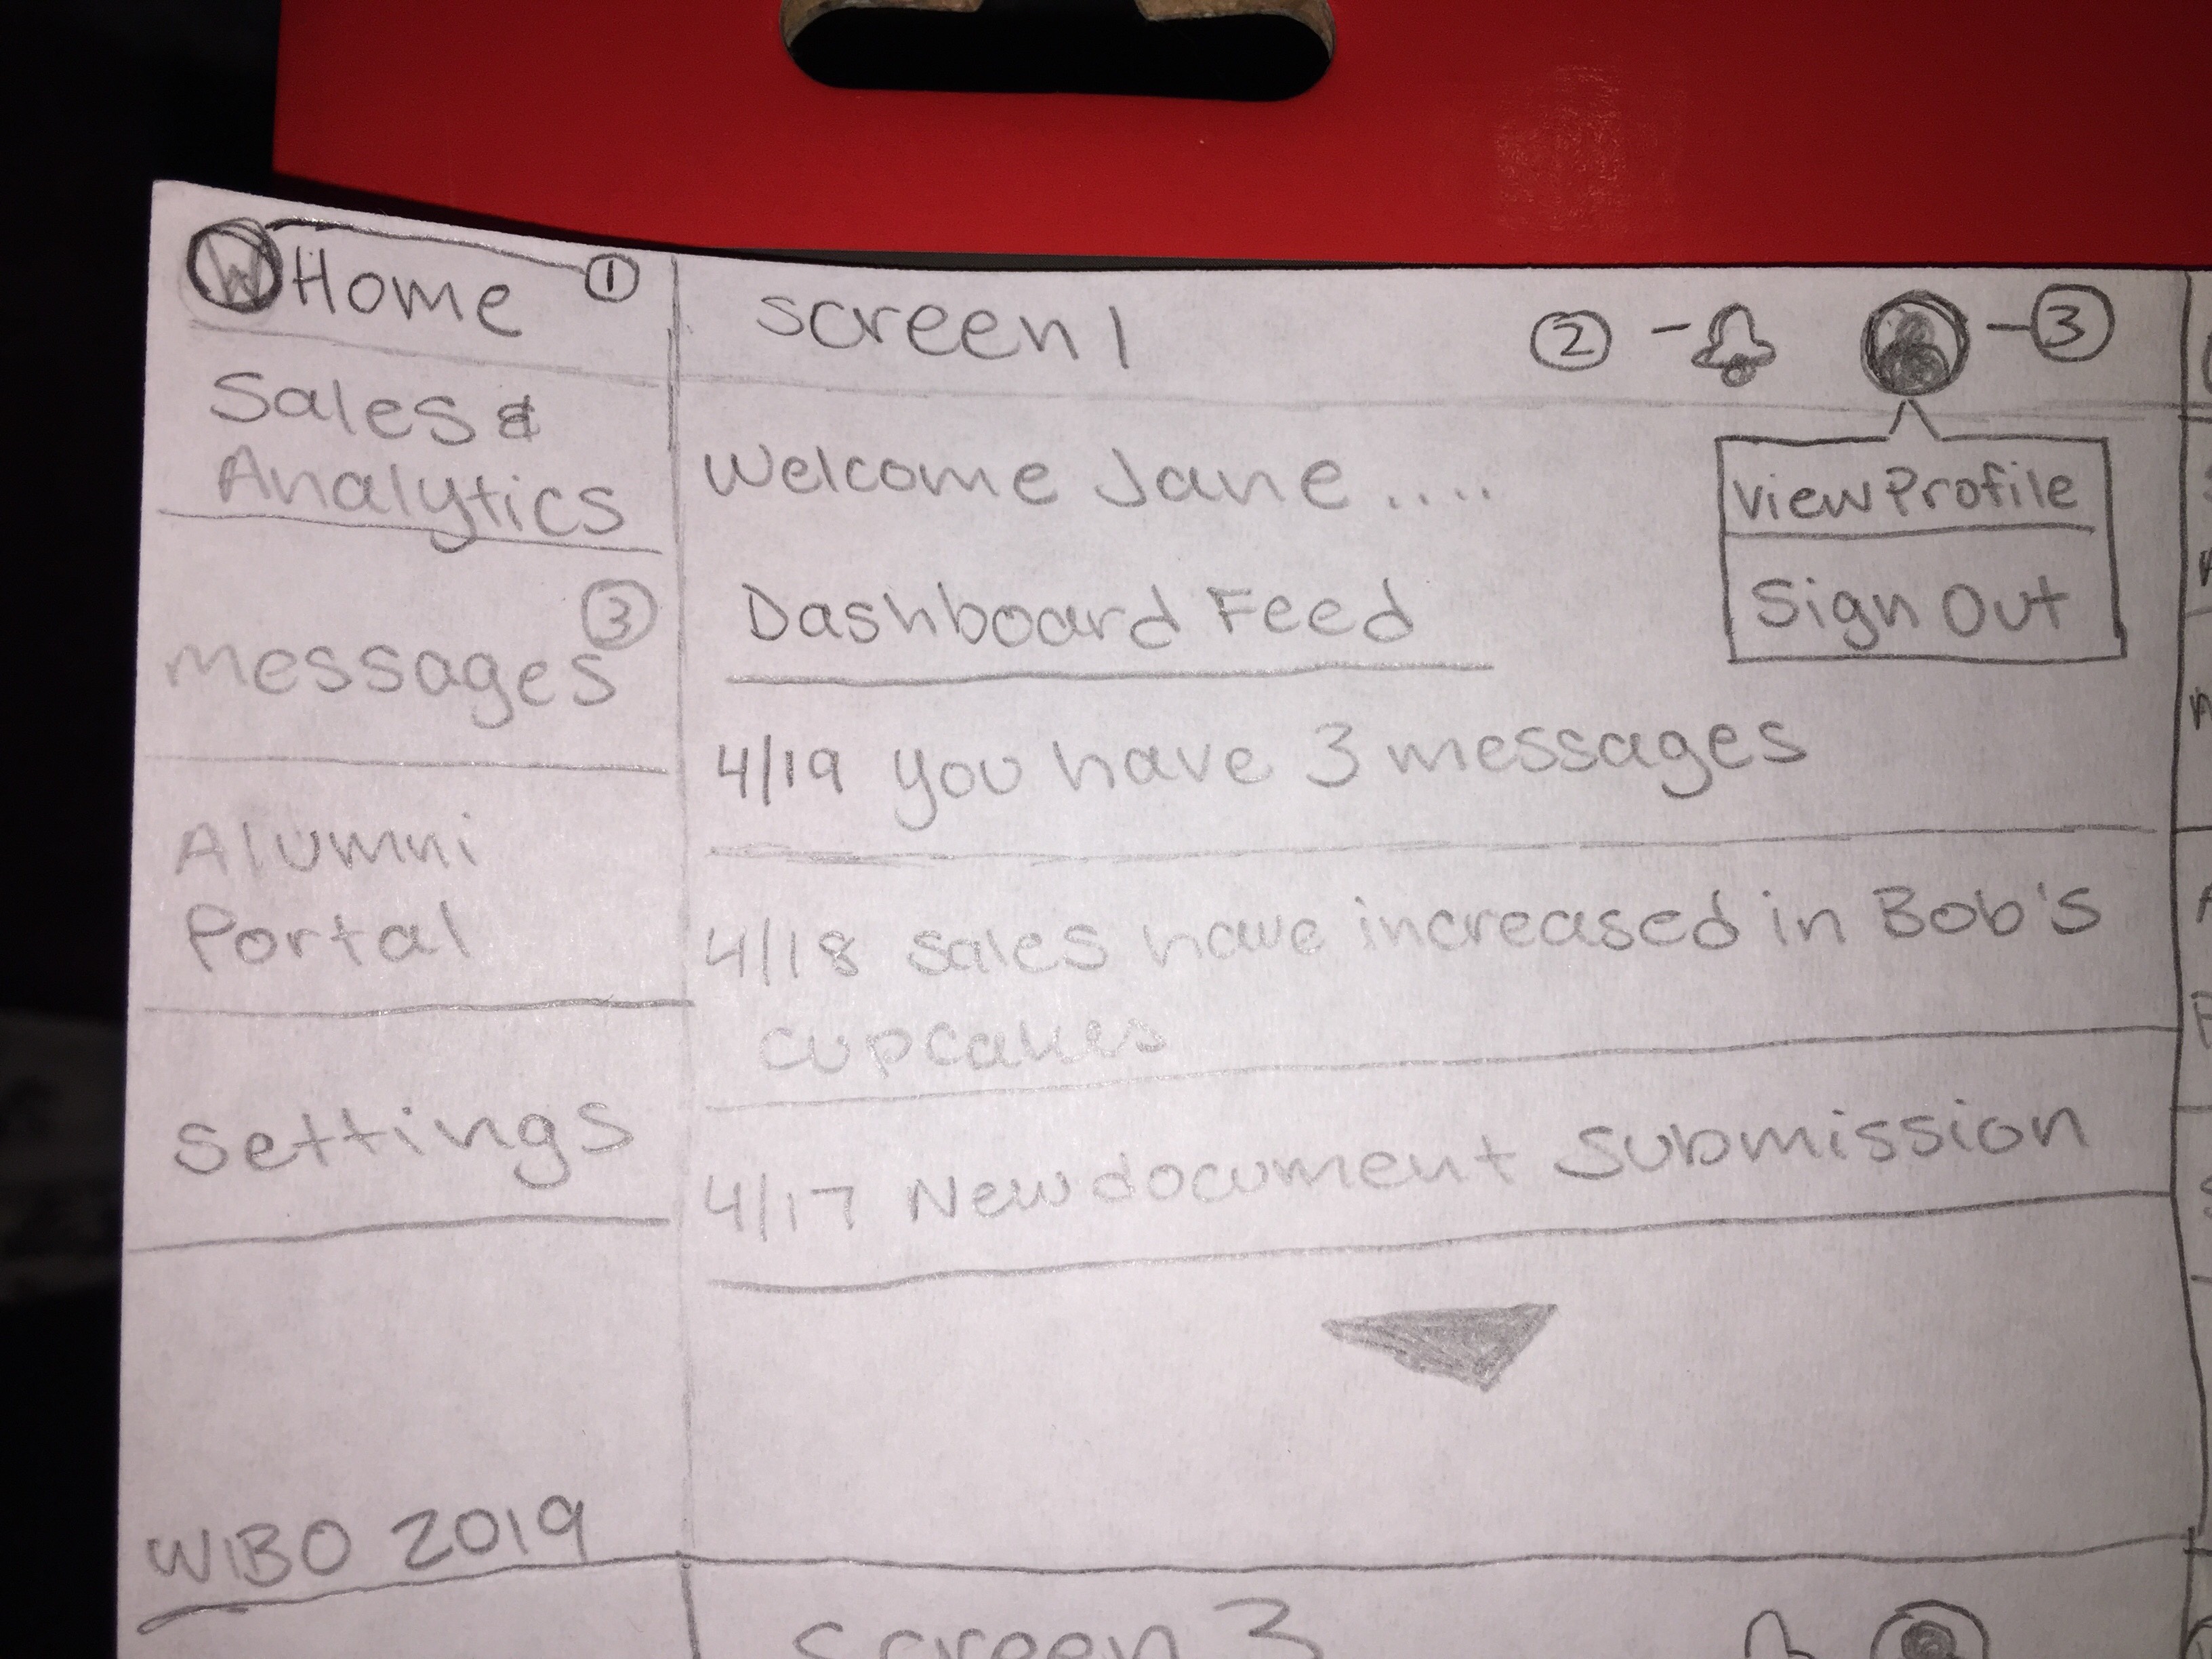 W Home 1
Sales &
Analytics
messages 3
Alumni
Portal
settings
WIBO 2019
screen 1
2 3
View Profile
Sign Out
Welcome Jane....
Dashboard Feed
4/19 you have 3 messages
4/18 sales have increased in Bob's
cupcakes
4/17 New document Submission
screen 3